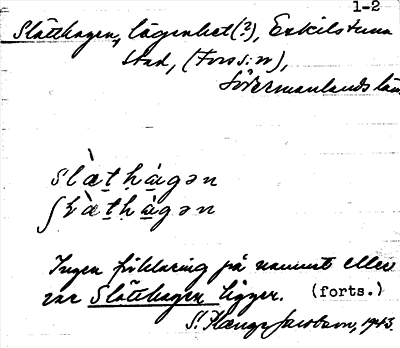 1-2
Slåtthagen, lägenhet(?), Eskilstuna
stad, (Fors:n),
Södermanlands län.
slæ̀tḥágən
Ingen förklaring på namnet eller
var Slåtthagen ligger. (forts.)
S. Hænge Jacobson, 1943.